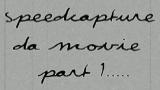 speedcapture
da movie
part 1.....